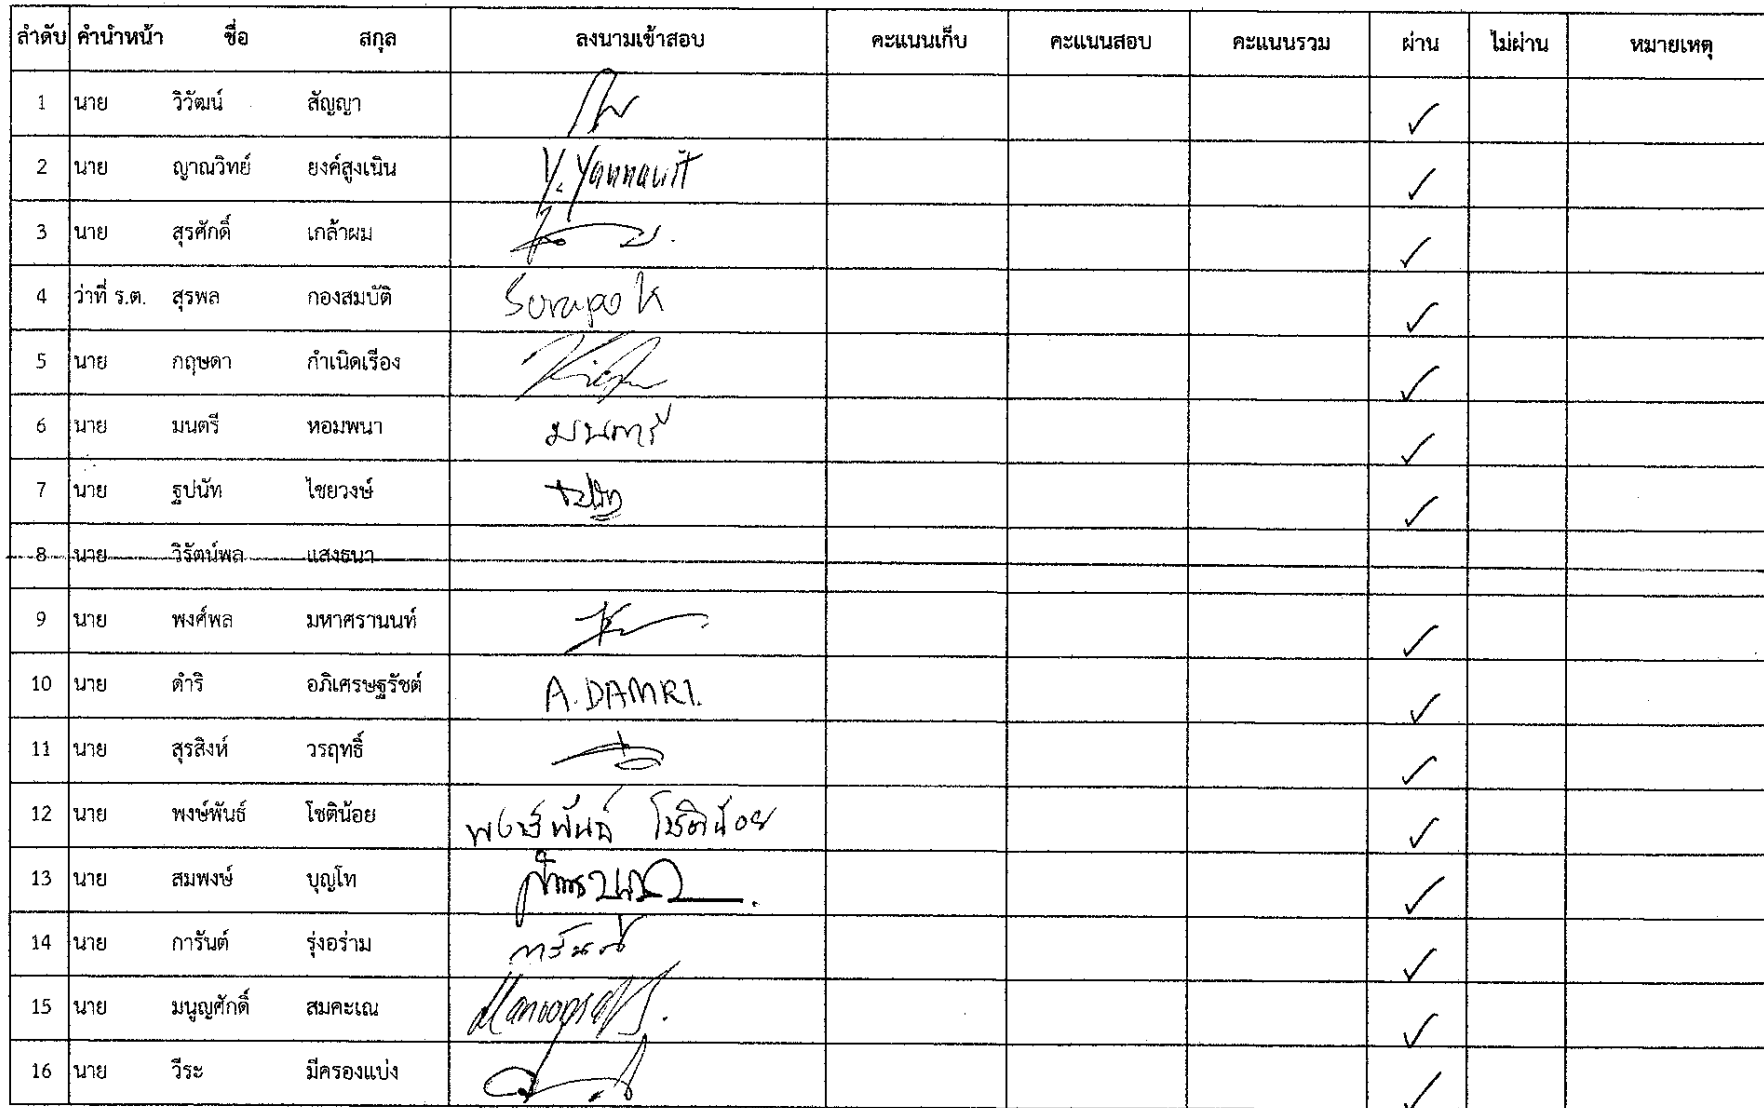 ลำดับ คำนำหน้า ชื่อ สกุล ลงนามเข้าสอบ คะแนนเก็บ คะแนนสอบ คะแนนรวม ผ่าน ไม่ผ่าน หมายเหตุ
1 นาย วิวัฒน์ สัญญา ✓
2 นาย ญาณวิทย์ ยงค์สูงเนิน Y. Yannawit ✓
3 นาย สุรศักดิ์ เกล้าผม ✓
4 ว่าที่ ร.ต. สุรพล กองสมบัติ Surapo K ✓
5 นาย กฤษดา กำเนิดเรือง ✓
6 นาย มนตรี หอมพนา มนตรี ✓
7 นาย ฐปนัท ไชยวงษ์ ✓
8 นาย วิรัตน์พล แสงธนา
9 นาย พงศ์พล มหาศรานนท์ ✓
10 นาย ดำริ อภิเศรษฐรัชต์ A. DAMRI. ✓
11 นาย สุรสิงห์ วรฤทธิ์ ✓
12 นาย พงษ์พันธ์ โชติน้อย พงษ์พันธ์ โชติน้อย ✓
13 นาย สมพงษ์ บุญโท ✓
14 นาย การันต์ รุ่งอร่าม การันต์ ✓
15 นาย มนูญศักดิ์ สมคะเณ ✓
16 นาย วีระ มีครองแบ่ง ✓